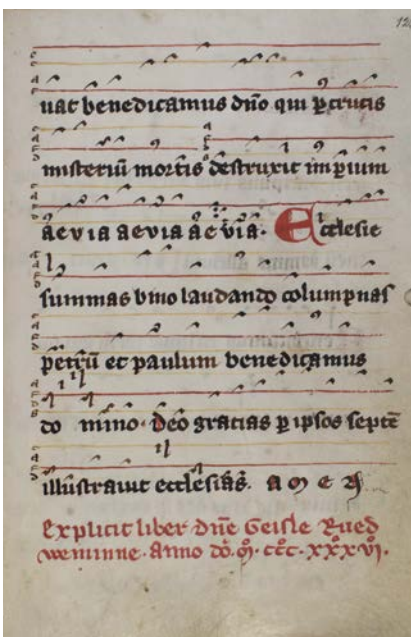 12
uat benedicamus dño qui ꝑ crucis
misteriũ mortis destruxit imꝑium
aevia aevia aevia. Ecclesie
summas bino laudando columpnas
petrũ et paulum benedicamus
do mino. deo gracias ꝑ ipsos septẽ
illustravit ecclesias. AMEN
Explicit liber dñe Geisle Rued
weminne. Anno dõ. m̊. ccc̊. xxxvi̊.